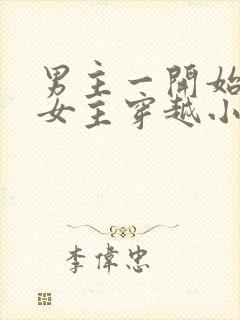 男主一開始
女主穿越小
李偉忠